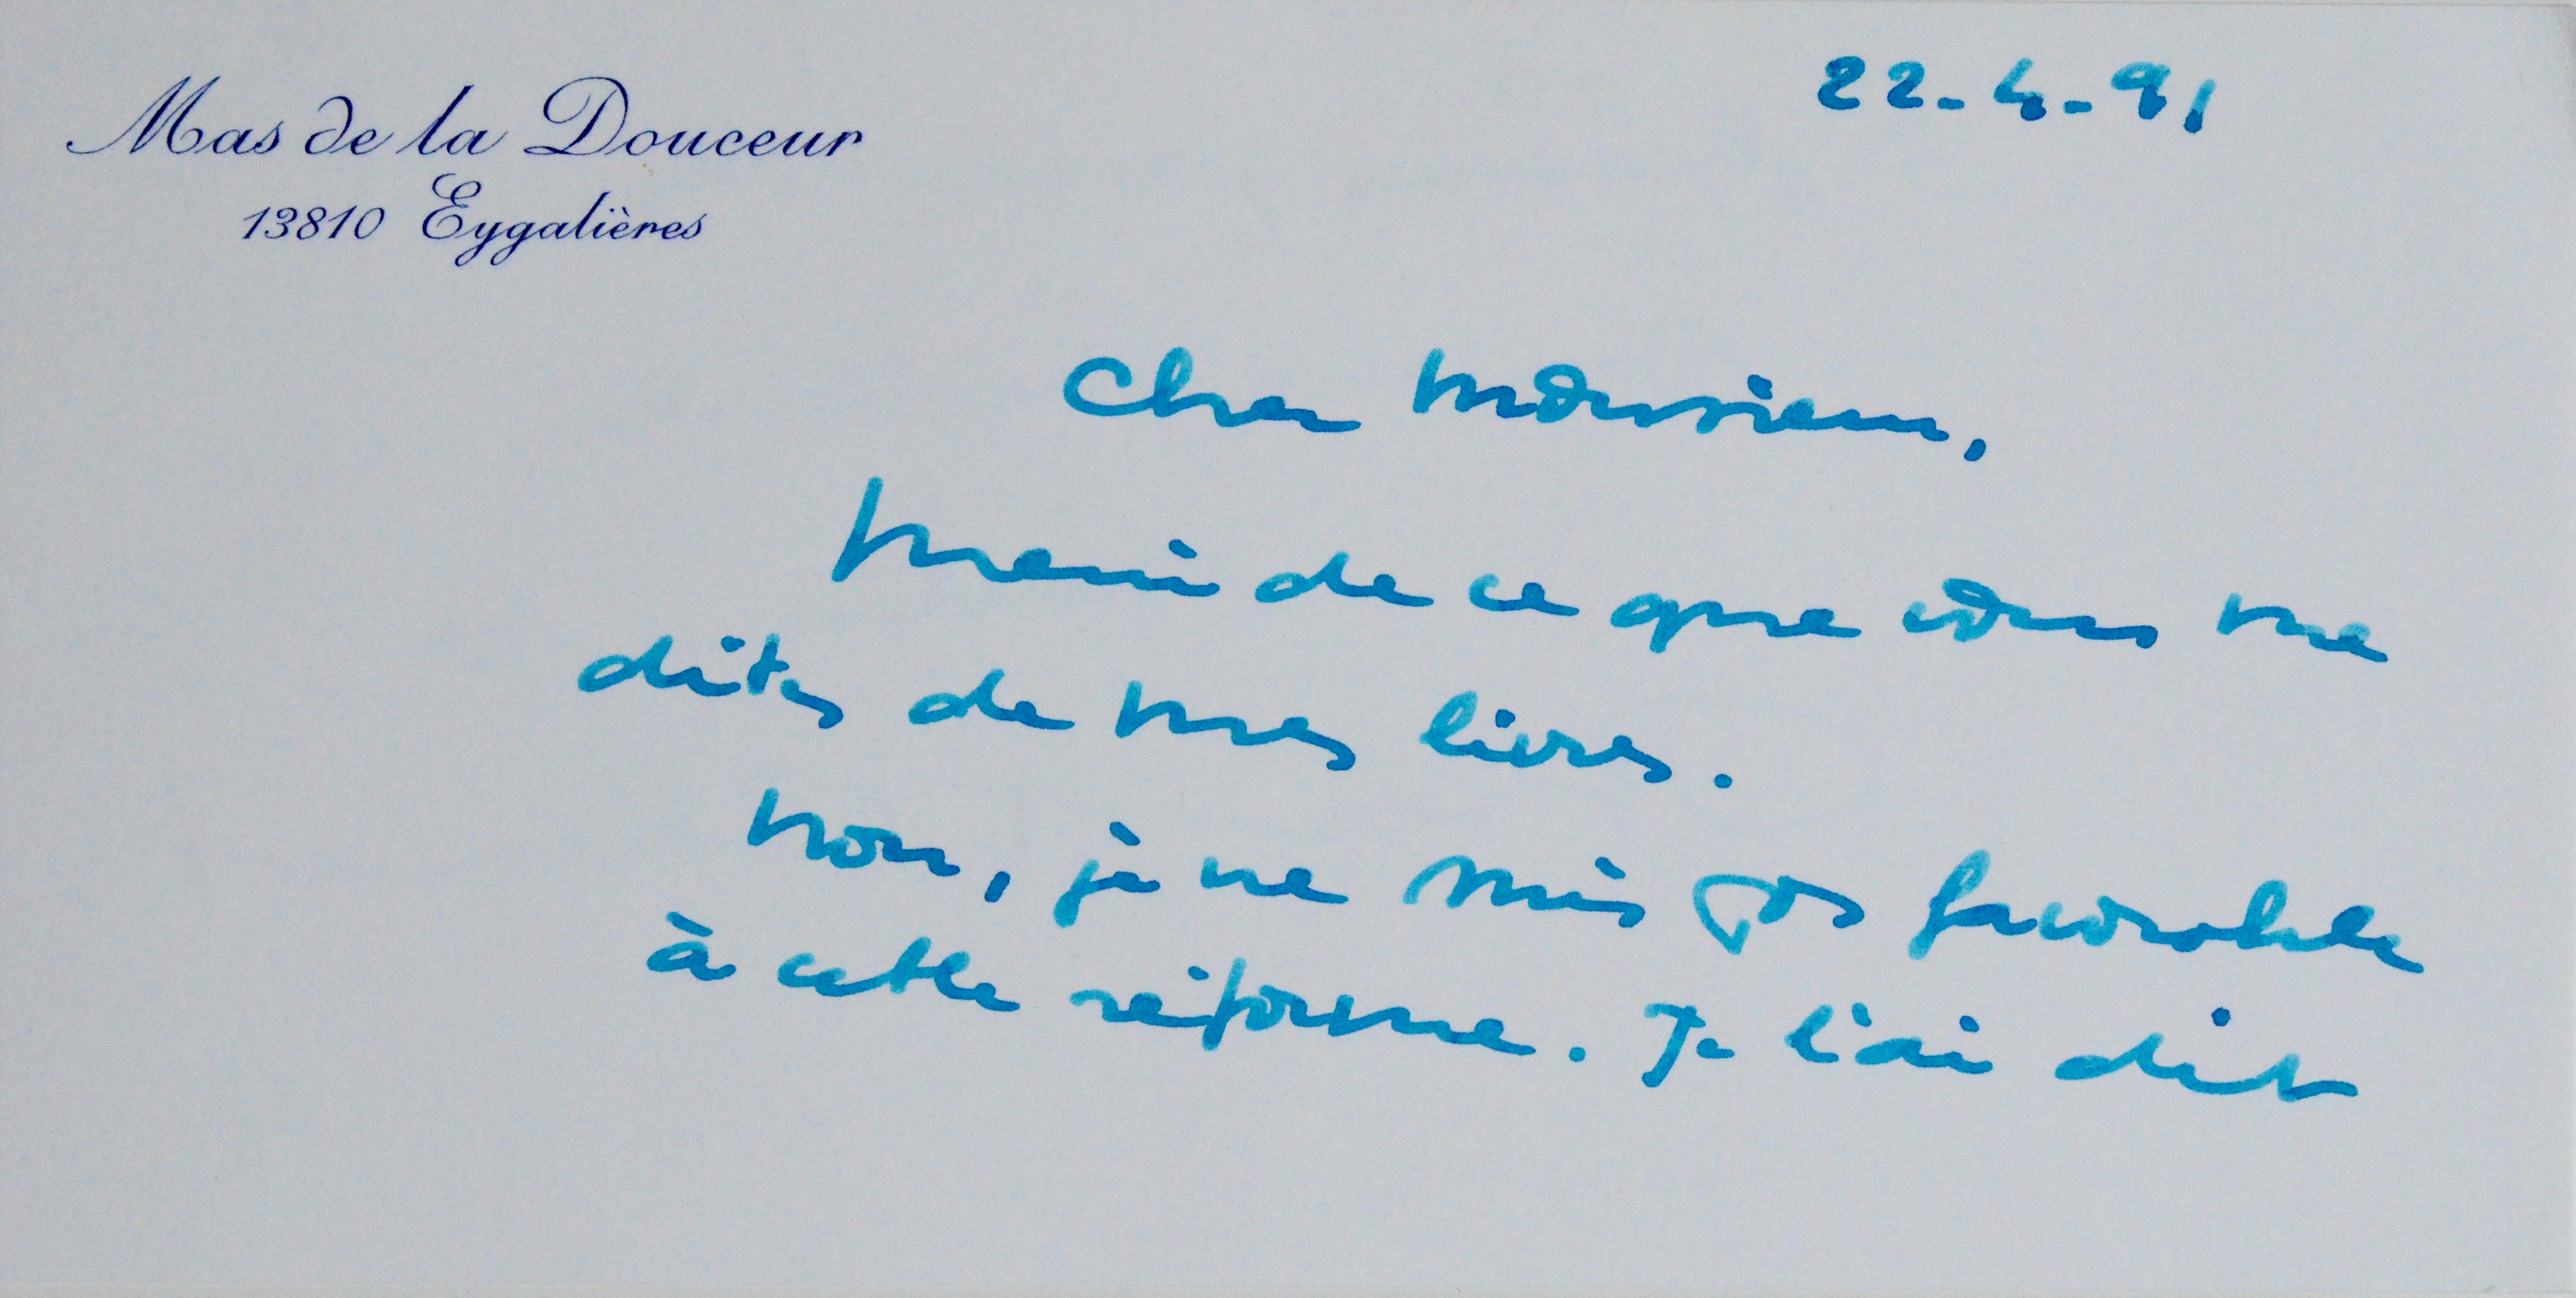 Mas de la Douceur
13810 Eygalières
22-4-91
Cher Monsieur,
Merci de ce que vous me
dites de mes livres.
Non, je ne suis pas favorable
à cette réforme. Je l'ai dit